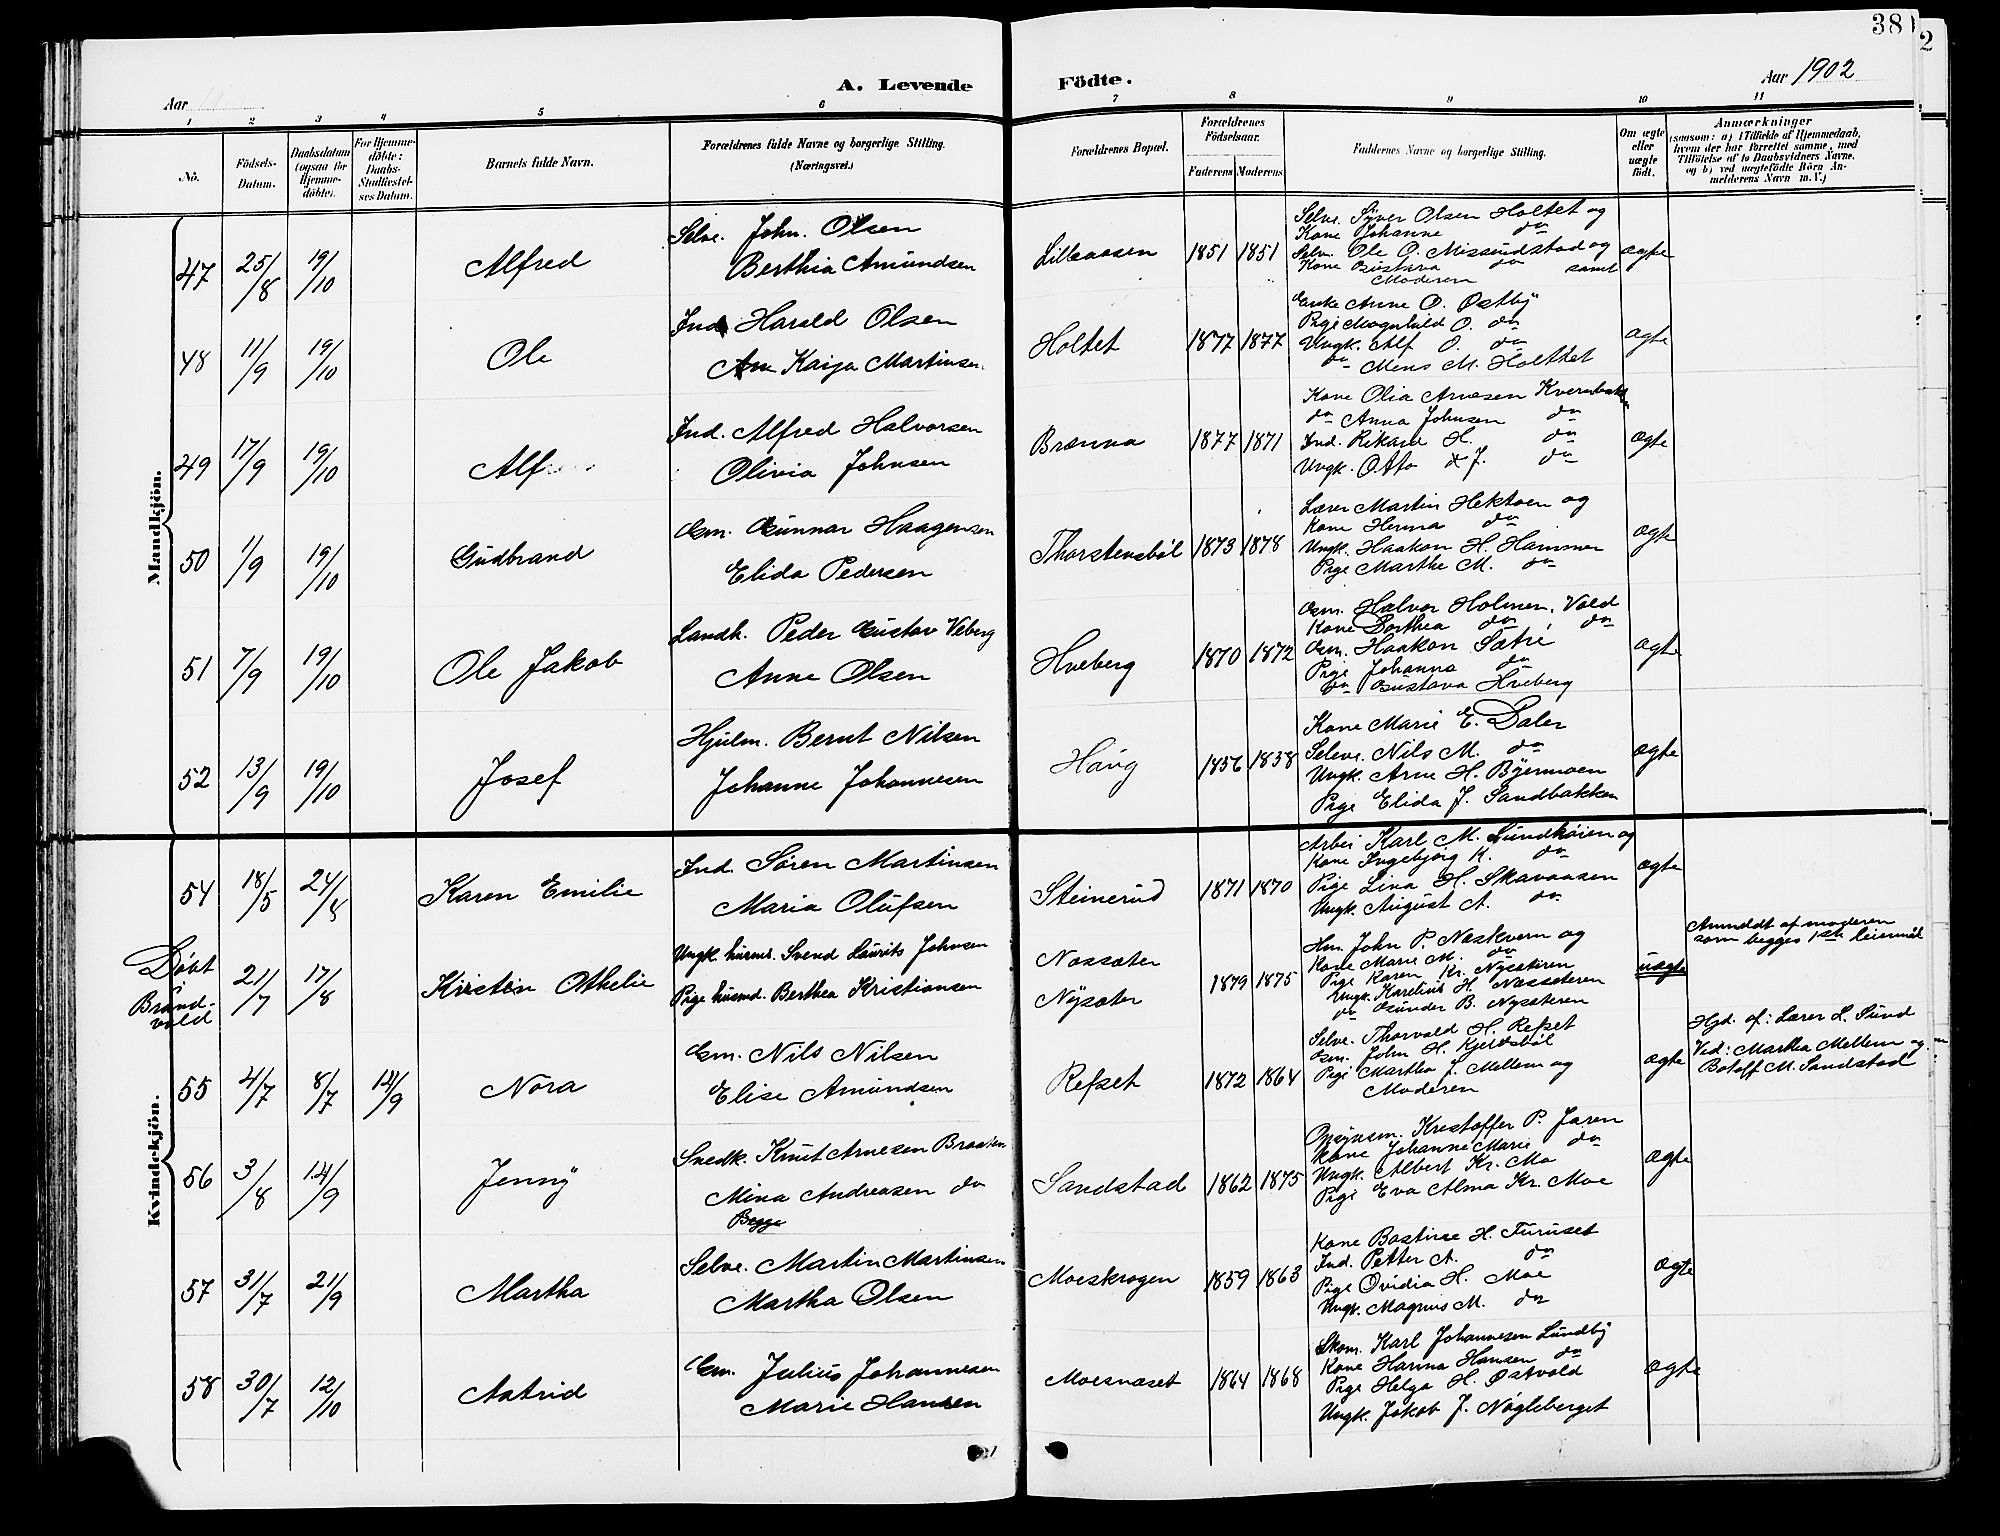 38
2
A. Levende Födte.
Aar
Aar 1902
1 2 3 4 5 6 7 8 9 10 11
Nö.
Födsels-Datum.
Daabsdatum (ogsaa for Hjemme-döbte).
For Hjemme-döbte: Daabs-Stadfæstel-ses Datum.
Barnets fulde Navn.
Forældrenes fulde Navne og borgerlige Stilling. (Næringsvei.)
Forældrenes Bopæl.
Forældrenes Födselsaar.
Faderens Moderens
Faddernes Navne og borgerlige Stilling.
Om ægte eller uægte födt.
Anmærkninger
(saasom: a) i Tilfælde af Hjemmedaab, hvem der har forrettet samme, med Tilföielse af to Daabsvidners Navne, og b) ved uægtefödte Börn An-melderens Navn m. V.)
Mandkjön.
47 25/8 19/10 Alfred
Selve. John. Olsen
Berthia Amundsen
Lilleaasen 1851 1851
Selve. Syver Olsen Holtet og
Kone Johanne do
Selv. Ole O. Missundstad og
Kone Gustava do samt
Moderen
ægte
48 11/9 19/10 Ole
Ind. Harald Olsen
Ane Kaija Martinsen
Holtet 1877 1877
Enke Anne O. Østby
Pige Magnhild O. do
Ungk. Alf O. do
do Mens M. Holthet
ægte
49 17/9 19/10 Alf
Ind. Alfred Halvorsen
Olivia Johnsen
Brænna 1877 1871
Kone Olia Arnesen Kvernbakken
do Anna Johnsen do
Ind. Rikard H. do
Ungk. Otto J. do
ægte
50 1/9 19/10 Gudbrand
Gm. Gunnar Haagensen
Elida Pedersen
Thorstensbøl 1873 1878
Lærer Martin Hektoen og
Kone Herma do
Ungk. Haakon H. Hammer
Pige Marthe M. do
ægte
51 7/9 19/10 Ole Jakob
Landh. Peder Gustav Veberg
Anne Olsen
Hveberg 1870 1872
Gm. Halvor Holmen, Vold
Kone Dorthea do do
Gm. Haakon Sætre
Pige Johanna do
do Gustava Hveberg
ægte
52 13/9 19/10 Josef
Hjulm. Bernt Nilsen
Johanne Johannesen
Haug 1856 1858
Kone Marie E. Daler
Selve. Nils M. do
Ungk. Arne H. Byermoen
Pige Elida J. Sandbakken
ægte
Kvindekjön.
54 18/5 24/8 Karen Emilie
Ind. Søren Martinsen
Maria Olufsen
Steinerud 1871 1870
Arbei Karl M. Lundhøien og
Kone Ingebjørg K. do
Pige Lina H. Skavaasen
Ungk. August A. do
ægte
Döbt i Brandvold 21/7 17/8 Kirsten Othelie
Ungk. husms. Svend Laurits Johnsen
Pige husmd. Berthea Kristiansen
Næssæter
Nysæter
1879 1875
Hm. John P. Næskvern og
Kone Marie M. do
Pige Karen Kr. Nysæteren
Ungk. Karelius H. Næssæteren
do Gunder B. Nysæteren
uægte
Anmeldt af moderen
som begges 1ste leiermål
55 4/7 8/7 14/9 Nora
Gm. Nils Nilsen
Elise Amundsen
Refset 1872 1864
Selve. Thorvald H. Refset
Gm. John H. Kjerdsbøl
Pige Martha J. Mellem og
Moderen
ægte
Hjd. af: Lærer L. Sund
Ved: Martha Mellem og
Botolf M. Sandstad
56 3/8 14/9 Jenny
Snedk. Knut Arnesen Braaten
Mina Andreasen do
Begge
Sandstad 1862 1875
Opsynsm. Kristoffer P. Jaren
Kone Johanne Marie do
Ungk. Albert Kr. Mo
Pige Eva Alma Kr. Moe
ægte
57 31/7 21/9 Martha
Selve. Martin Martinsen
Martha Olsen
Moeskrogen 1859 1863
Kone Bastine H. Furuset
Ind. Petter A. do
Pige Ovidia H. Moe
Ungk. Magnus M. do
ægte
58 30/7 12/10 Astrid
Gm. Julius Johannesen
Marie Hansen
Moesnæset 1864 1868
Skom. Karl Johannesen Lundby
Kone Hanna Hansen do
Pige Helga H. Østvold
Ungk. Jakob J. Nøgleberget
ægte